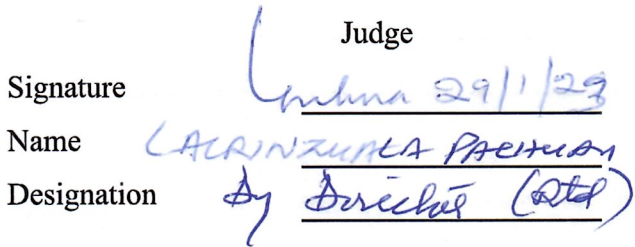 Judge
Signature 29/1/23
Name LALRINZUALA PACHUAU
Designation Dy Director (Rtd)